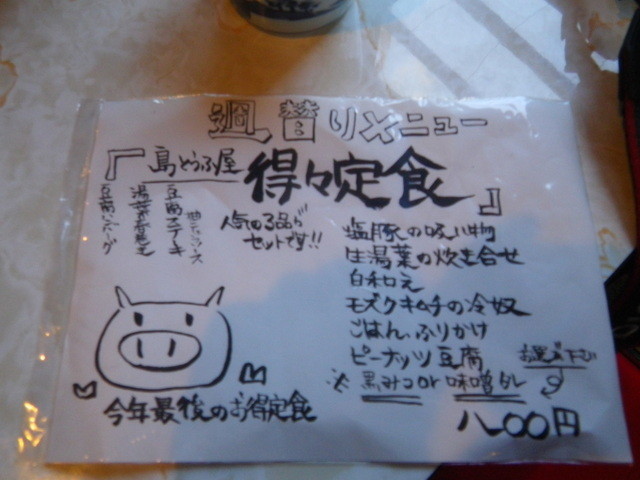 週替りメニュー
『島とうふ屋 得々定食』
豆腐ステーキ
豆腐ハンバーグ
人気の3品が
セットです!!
塩豚の吸い物
生湯葉の炊き合せ
白和え
モズクキムチの冷奴
ごはん、ふりかけ
ピーナッツ豆腐
お選び下さい
※黒みつor味噌ダレ
今年最後のお得定食
八〇〇円